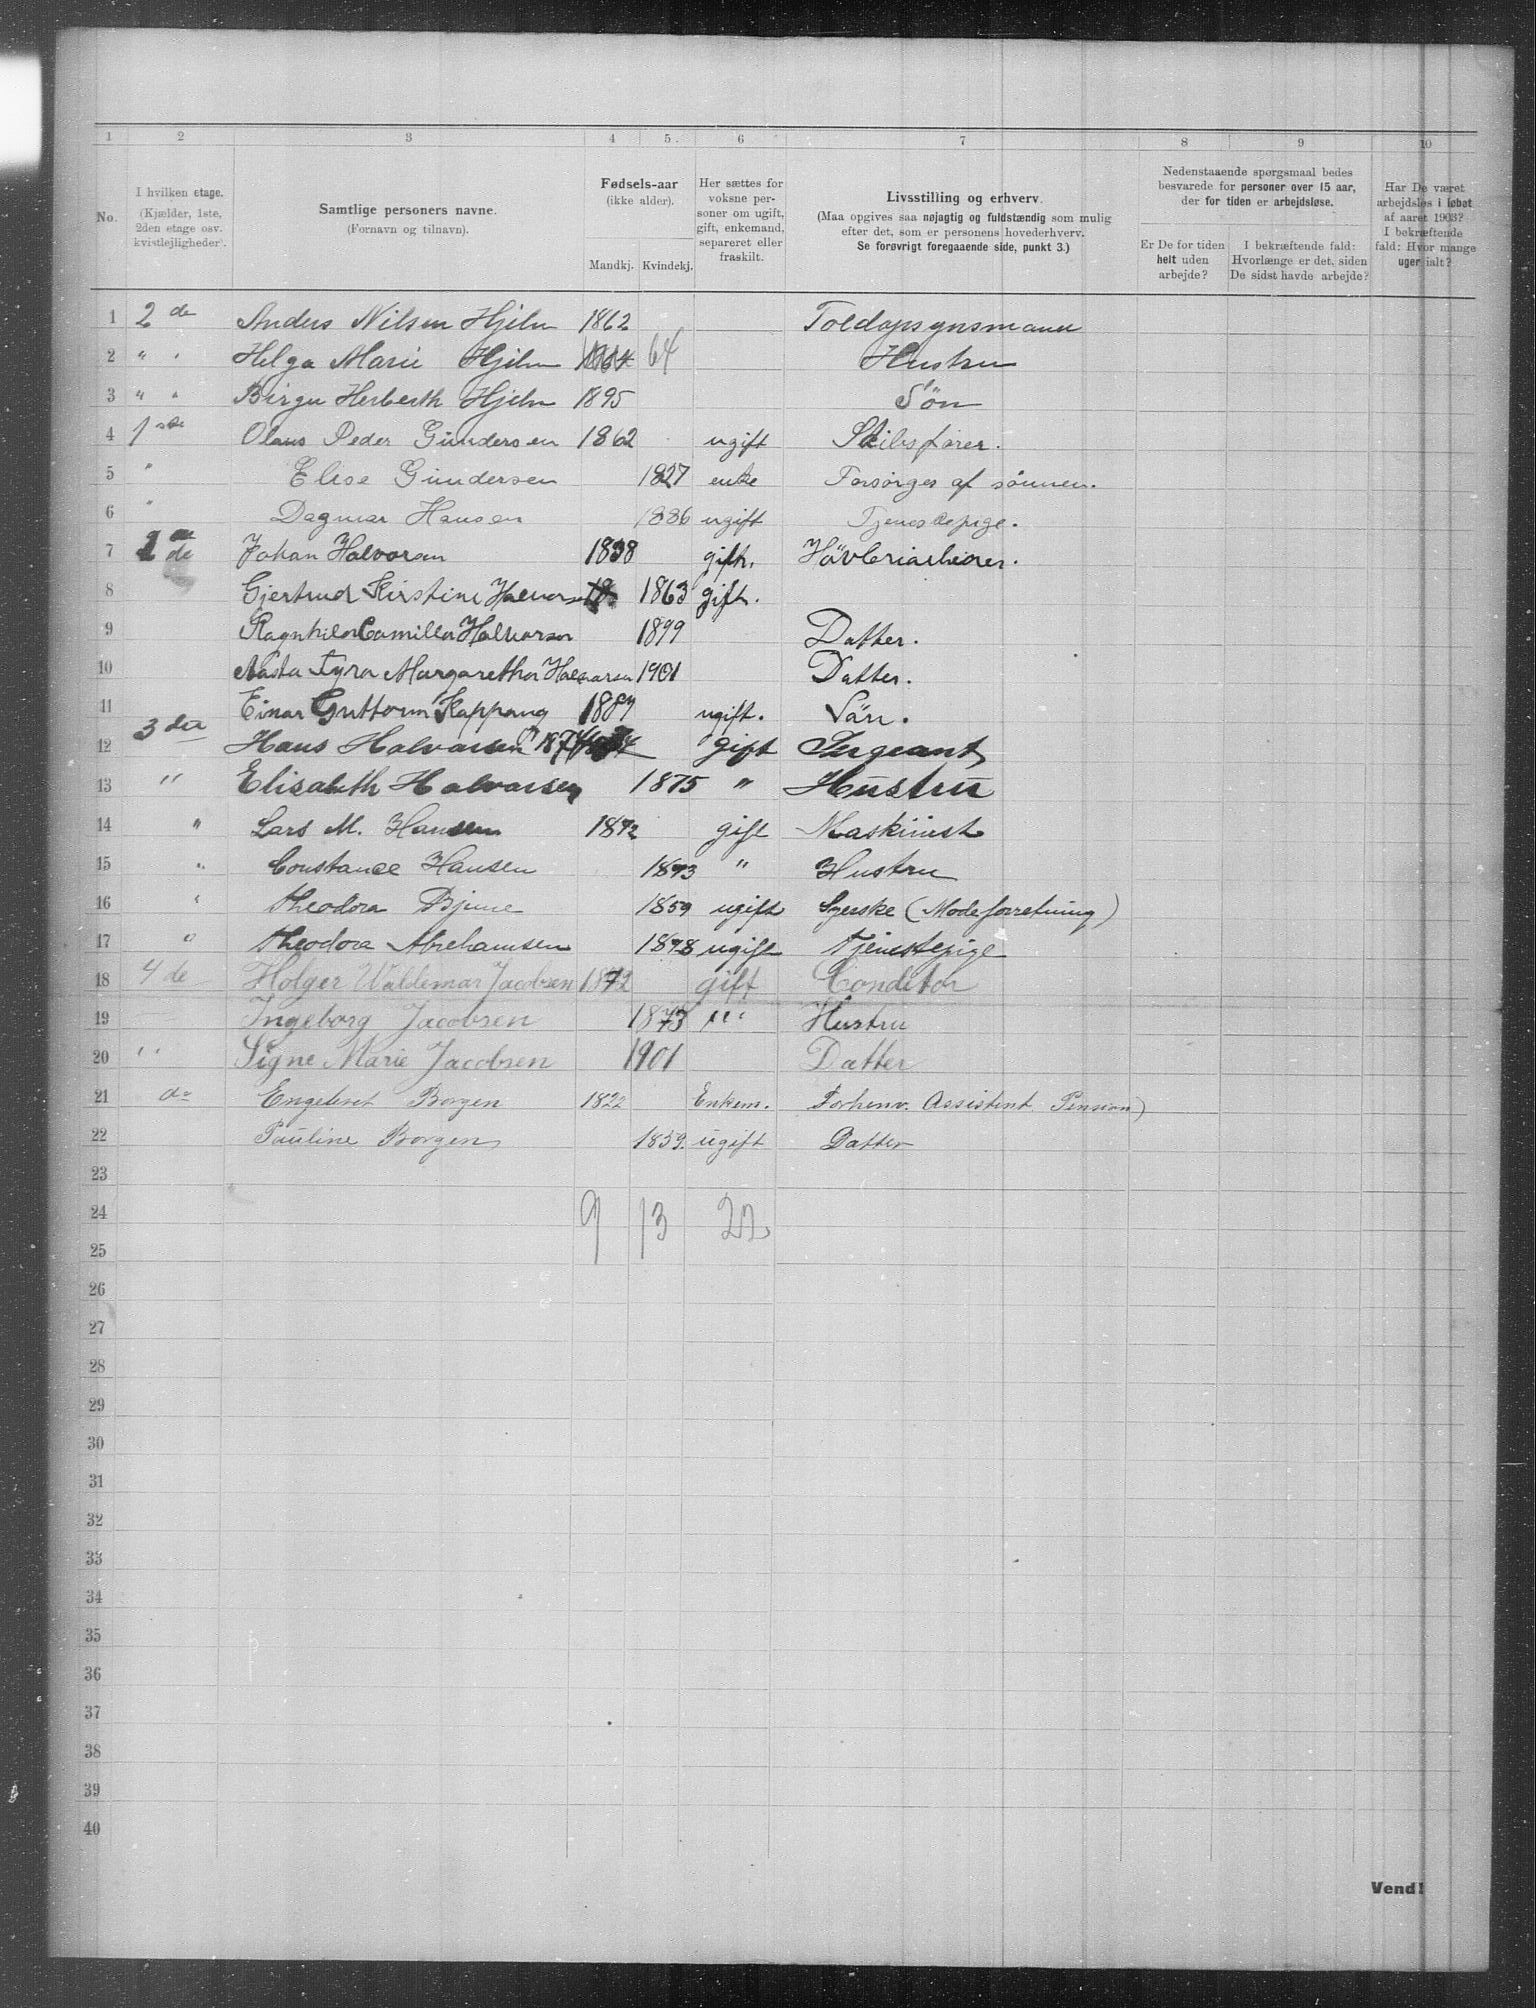 1 2 3 4 5. 6 7 8 9 10
No.
I hvilken etage.
(Kjælder, 1ste,
2den etage osv.
kvistlejligheder).
Samtlige personers navne.
(Fornavn og tilnavn).
Fødsels-aar
(ikke alder).
Mandkj. Kvindekj.
Her sættes for
voksne per-
soner om ugift,
gift, enkemand,
separeret eller
fraskilt.
Livsstilling og erhverv.
(Maa opgives saa nøjagtig og fuldstændig som mulig
efter det, som er personens hovederhverv.
Se forøvrigt foregaaende side, punkt 3.)
Nedenstaaende spørgsmaal bedes
besvarede for personer over 15 aar,
der for tiden er arbejdsløse.
Er De for tiden
helt uden
arbejde?
I bekræftende fald:
Hvorlænge er det, siden
De sidst havde arbejde?
Har De været
arbejdsløs i løbet
af aaret 1903?
I bekræftende
fald: Hvor mange
uger ialt?
1 2 de Anders Nilsen Hjelm 1862 Toldopsynsmann
2 " " Helga Marie Hjelm 1864 64 Hustru
3 " " Birger Herberth Hjelm 1895 Søn
4 1ste Olaus Peder Gundersen 1862 ugift Skibsfører.
5 " Elise Gundersen 1827 enke Forsørges af sønnen.
6 " Dagmar Hansen 1886 ugift Tjenestepige.
7 de Johan Halvorsen 1858 gift. Høvleriarbeider.
8 Gjertrud Kirstine Halvorsen 18 1863 gift.
9 Ragnhild Camilla Halvorsen 1899 Datter.
10 Aasta Tyra Margaretha Halvorsen 1901 Datter.
11 Einar Guttorm Kappang 1887 ugift. Sön.
12 3 die Hans Halvorsen 1874 gift Sergeant
13 " Elisabeth Halvorsen 1875 " Hustru
14 " Lars M. Hansen 1872 gift Maskinist
15 " Constance Hansen 1873 " Hustru
16 " Theodora Bjune 1859 ugift Syerske (Modeforretning)
17 " Theodora Abrahamsen 1878 ugift Tjenestepige
18 4 de Holger Waldemar Jacobsen 1872 gift Conditor
19 Ingeborg Jacobsen 1873 " Hustru
20 " Signe Marie Jacobsen 1901 Datter
21 do Engebret Borgen 1822 Enkem. Forhenv. Assistent Pension)
22 Pauline Borgen 1859. ugift Datter
23
24 9 13 22
25
26
27
28
29
30
31
32
33
34
35
36
37
38
39
40
Vend!